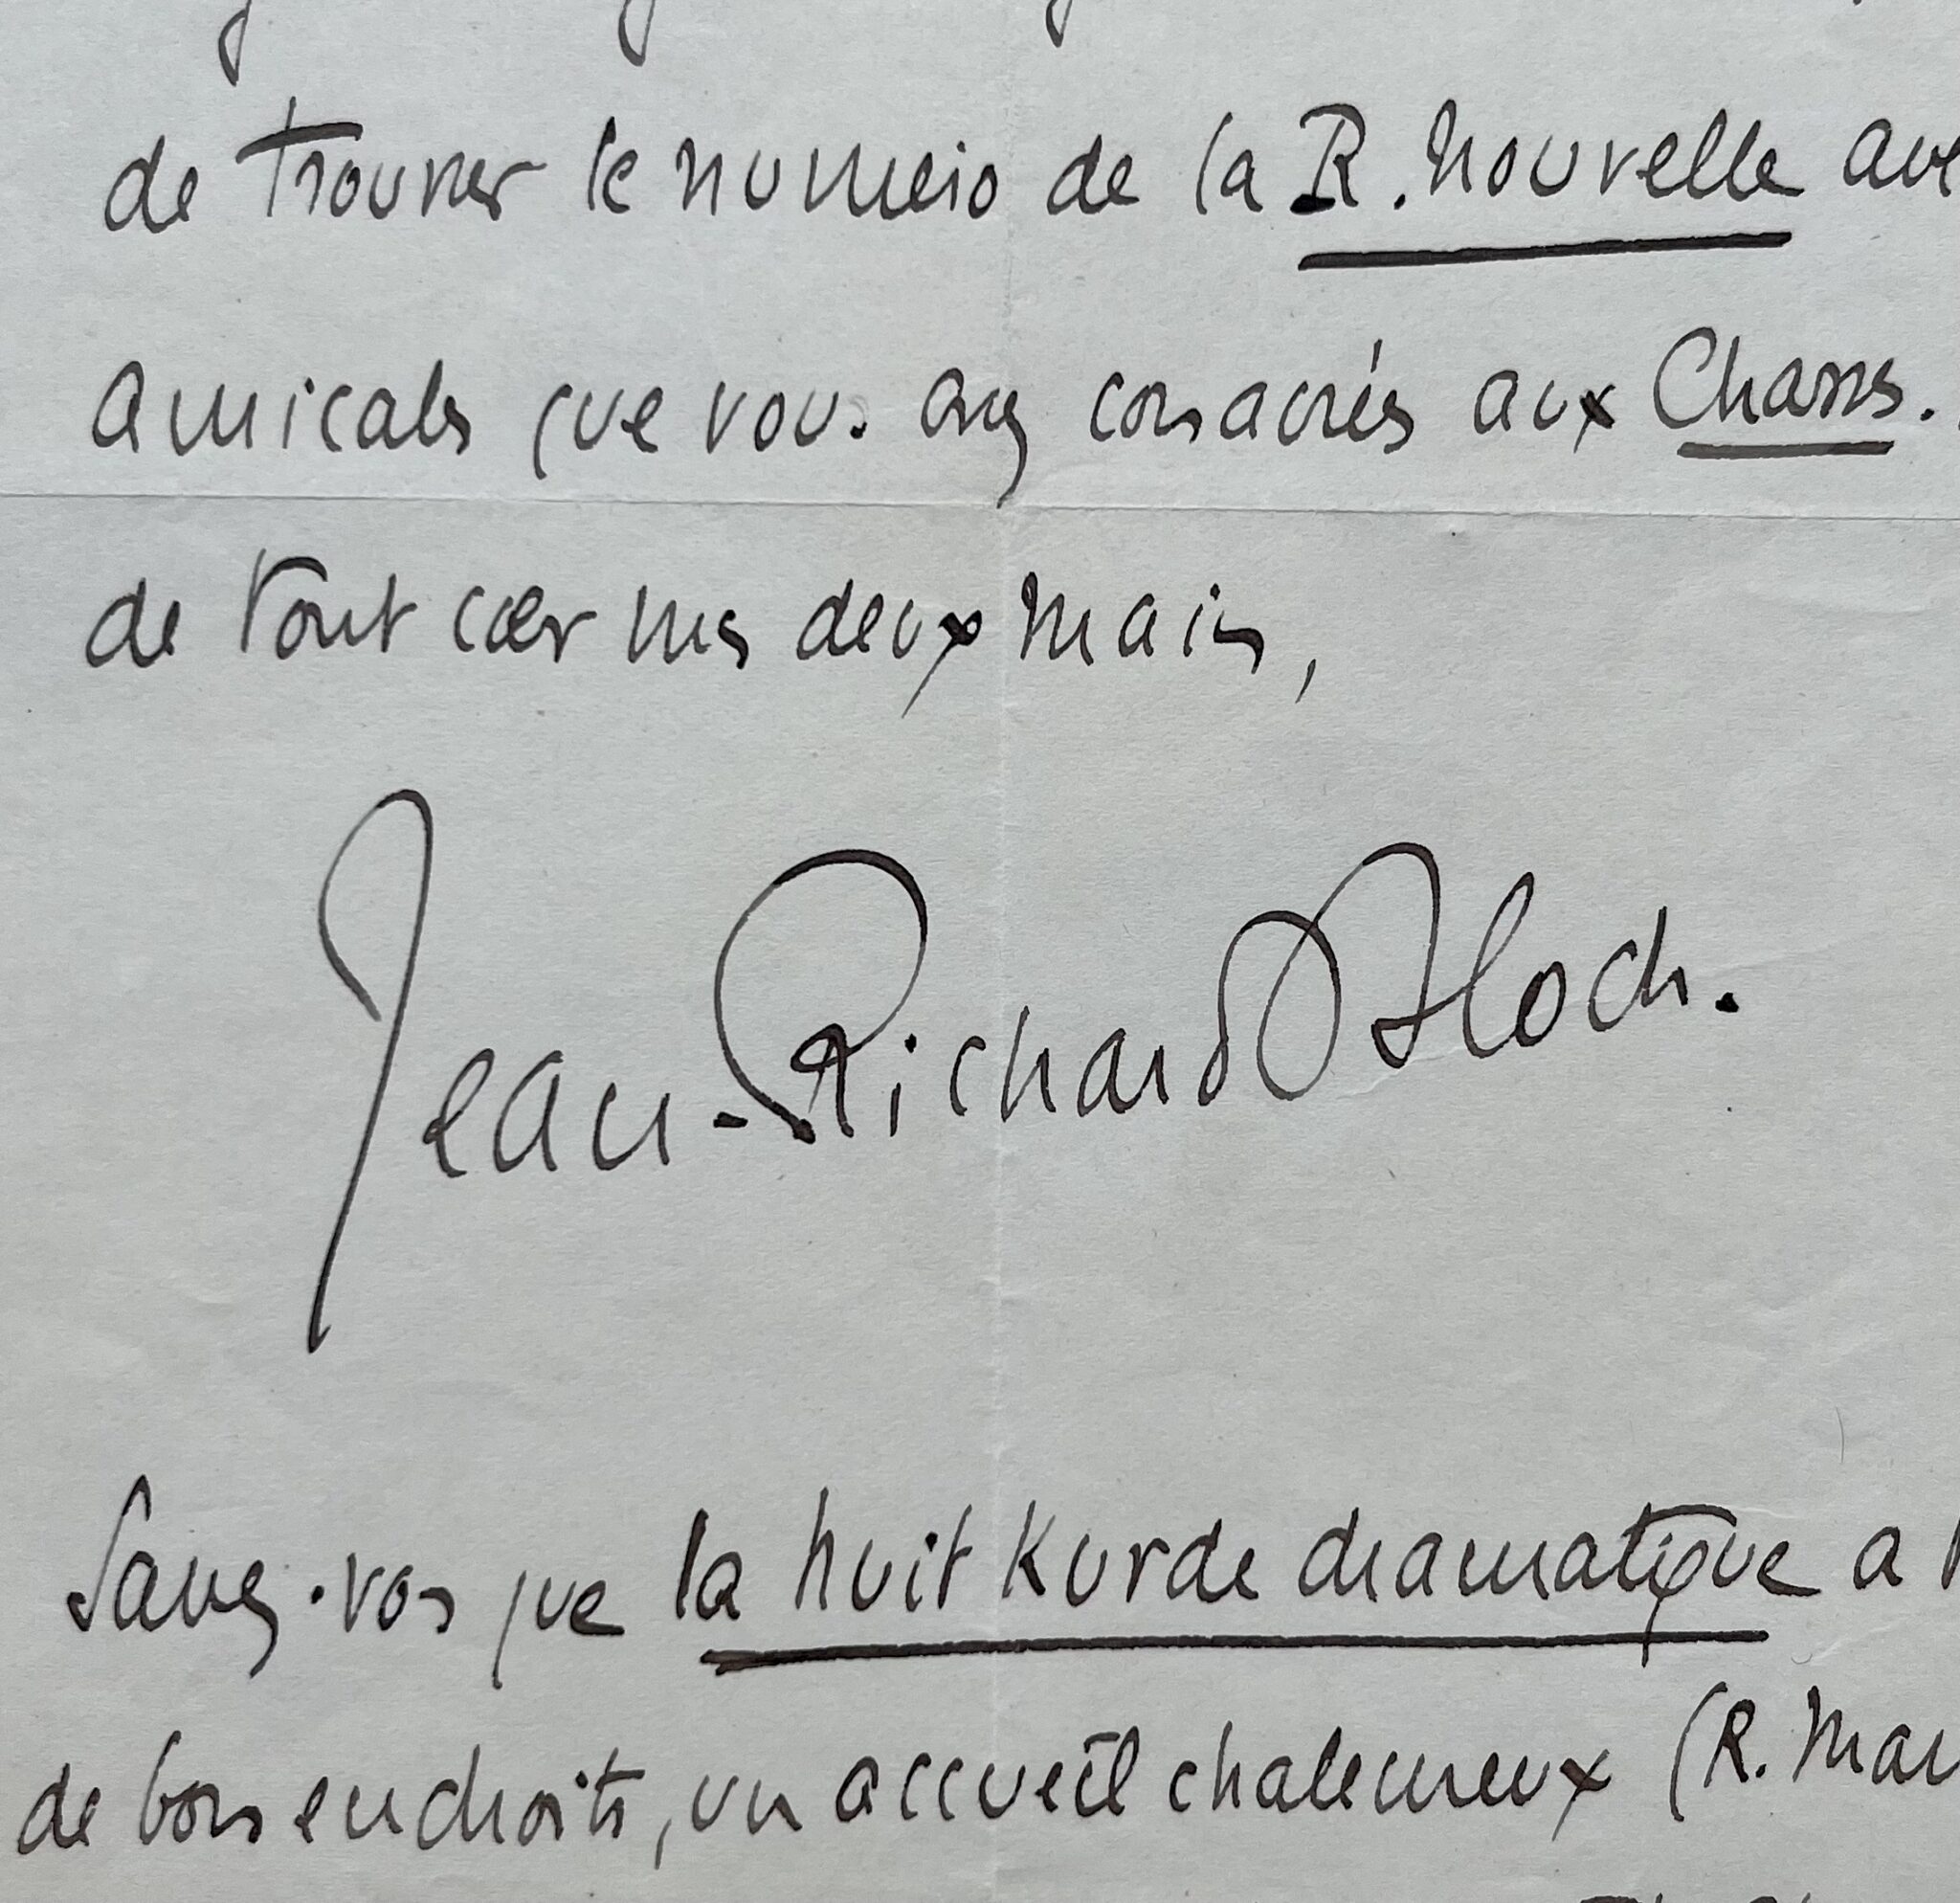 de trouver le numéro de la R. Nouvelle
amicales que vous avez consacrés aux Chasses.
de tout cœur mes deux mains,
Jean-Richard Bloch.
Savez-vous que la Nuit Kurde dramatique a
de bons endroits, un accueil chaleureux (R.